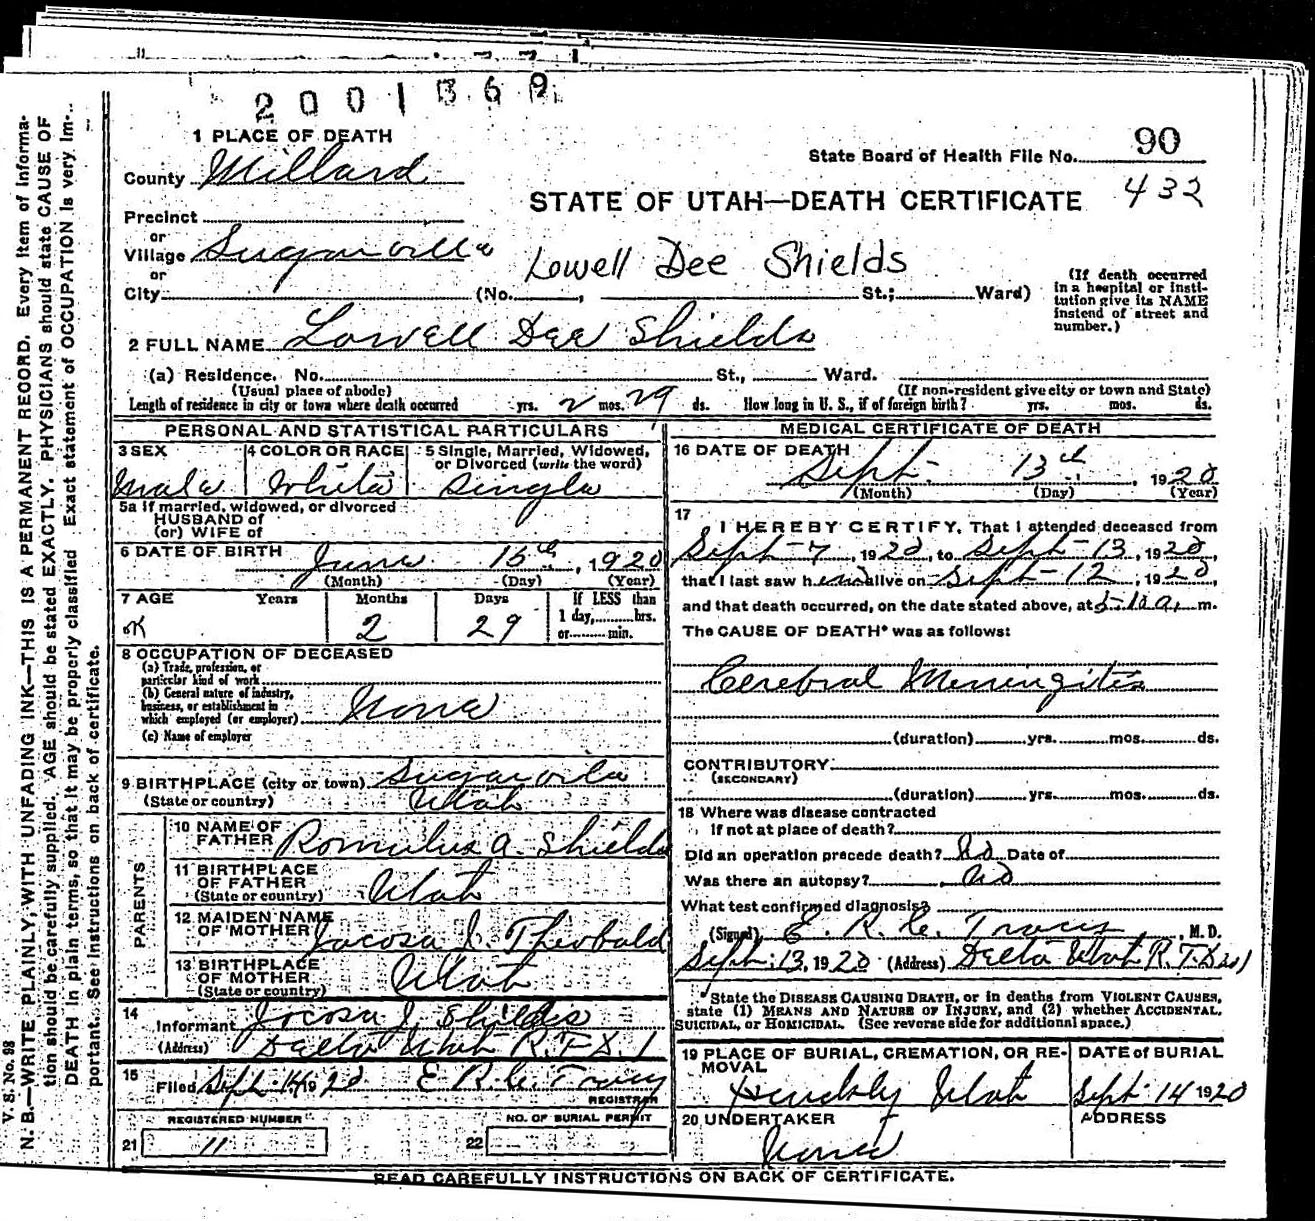 2001369
1 PLACE OF DEATH
90
State Board of Health File No.
County Millard
432
STATE OF UTAH—DEATH CERTIFICATE
Precinct
or
Village Sugarville
Lowell Dee Shields
or
City (No. , St.; Ward)
(If death occurred in a hospital or institution give its NAME instead of street and number.)
2 FULL NAME Lowell Dee Shields
(a) Residence. No. St., Ward.
(Usual place of abode) (If non-resident give city or town and State)
Length of residence in city or town where death occurred yrs. 2 mos. 29 ds. How long in U. S., if of foreign birth? yrs. mos. ds.
PERSONAL AND STATISTICAL PARTICULARS
3 SEX 4 COLOR OR RACE 5 Single, Married, Widowed,
or Divorced (write the word)
Male White Single
5a If married, widowed, or divorced
HUSBAND of
(or) WIFE of
6 DATE OF BIRTH June 15th, 1920
(Month) (Day) (Year)
7 AGE Years Months Days If LESS than
1 day, hrs.
OK 2 29 or min.
8 OCCUPATION OF DECEASED
(a) Trade, profession, or
particular kind of work
(b) General nature of industry,
business, or establishment in
which employed (or employer) None
(c) Name of employer
9 BIRTHPLACE (city or town) Sugarville
(State or country) Utah
PARENTS
10 NAME OF
FATHER Romulus A. Shields
11 BIRTHPLACE
OF FATHER Utah
(State or country)
12 MAIDEN NAME
OF MOTHER Jocosa J. Theobald
13 BIRTHPLACE
OF MOTHER Utah
(State or country)
14
Informant Jocosa J. Shields
(Address) Delta Utah R.F.D. 1
15
Filed Sept. 14 1920 E R C Tracy
REGISTRAR
REGISTERED NUMBER NO. OF BURIAL PERMIT
21 11 22
MEDICAL CERTIFICATE OF DEATH
16 DATE OF DEATH
Sept. 13th, 1920
(Month) (Day) (Year)
17
I HEREBY CERTIFY, That I attended deceased from
Sept-7, 1920, to Sept-13, 1920,
that I last saw him alive on Sept-12, 1920
and that death occurred, on the date stated above, at m.
The CAUSE OF DEATH* was as follows:
Cerebral Meningitis
(duration) yrs. mos. ds.
CONTRIBUTORY
(SECONDARY)
(duration) yrs. mos. ds.
18 Where was disease contracted
If not at place of death?
Did an operation precede death? No Date of
Was there an autopsy? No
What test confirmed diagnosis?
(Signed) E. R. C. Tracy, M. D.
Sept. 13, 1920 (Address) Delta Utah R.F.D no 1
*State the DISEASE CAUSING DEATH, or in deaths from VIOLENT CAUSES,
state (1) MEANS AND NATURE OF INJURY, and (2) whether ACCIDENTAL,
SUICIDAL, or HOMICIDAL. (See reverse side for additional space.)
19 PLACE OF BURIAL, CREMATION, OR RE-
MOVAL
DATE of BURIAL
Hinckley Utah Sept. 14 1920
20 UNDERTAKER ADDRESS
None
READ CAREFULLY INSTRUCTIONS ON BACK OF CERTIFICATE.
V. S. No. 98
N. B.—WRITE PLAINLY, WITH UNFADING INK—THIS IS A PERMANENT RECORD. Every item of informa-
tion should be carefully supplied. AGE should be stated EXACTLY. PHYSICIANS should state CAUSE OF
DEATH in plain terms, so that it may be properly classified. Exact statement of OCCUPATION is very im-
portant. See instructions on back of certificate.